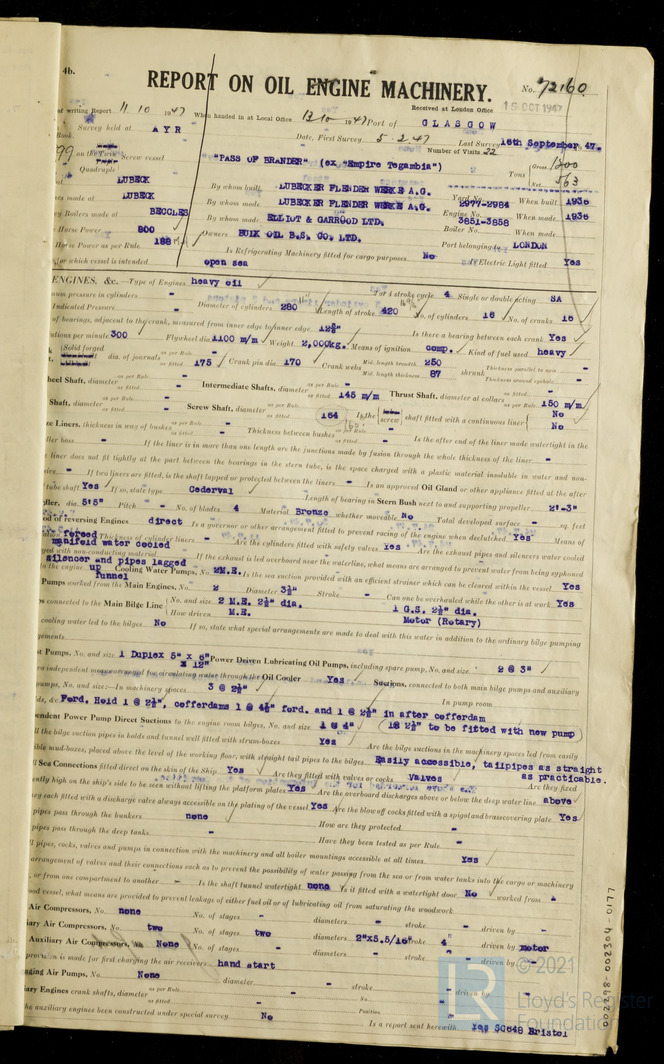 4b.
REPORT ON OIL ENGINE MACHINERY.
No. 72160
Received at London Office 15 OCT 1947
of writing Report 11 10 1947 When handed in at Local Office 13 10 1947 Port of GLASGOW
Survey held at AYR Date, First Survey 5 2 47 Last Survey 16th September 47.
Book. Number of Visits 22
on the Screw vessel "PASS OF BRANDER" (ex "Empire Tegambia") Tons Gross 1200
Quadruple Net 563
at LUBECK By whom built LUBECKER FLENDER WERKE A.G. Yard No. When built 1936
es made at LUBECK By whom made LUBECKER FLENDER WERKE A.G. Engine No. 2977-2984 When made 1936
y Boilers made at BECCLES By whom made ELLIOT & GARROOD LTD. Boiler No. 3851-3858 When made
Horse Power 800 Owners BULK OIL S.S. CO. LTD. Port belonging to LONDON
Horse Power as per Rule 188 Is Refrigerating Machinery fitted for cargo purposes No Is Electric Light fitted Yes
for which vessel is intended open sea
ENGINES, &c.—Type of Engines heavy oil 2 or 4 stroke cycle 4 Single or double acting SA
mum pressure in cylinders - Diameter of cylinders 280 Length of stroke 420 No. of cylinders 16 No. of cranks 16
Indicated Pressure -
of bearings, adjacent to the crank, measured from inner edge to inner edge 12⅝" Is there a bearing between each crank Yes
utions per minute 300 Flywheel dia. 1100 m/m Weight 2,000kg. Means of ignition comp. Kind of fuel used heavy
Solid forged dia. of journals as per Rule - as fitted 175 Crank pin dia. 170 Crank webs Mid. length breadth 250 Mid. length thickness 87 shrunk Thickness parallel to axis - Thickness around eyehole -
heel Shaft, diameter as per Rule - as fitted - Intermediate Shafts, diameter as per Rule as fitted 145 m/m Thrust Shaft, diameter at collars as per Rule as fitted 150 m/m
Shaft, diameter as per Rule - as fitted - Screw Shaft, diameter as per Rule as fitted 164 Is the screw shaft fitted with a continuous liner No No
ze Liners, thickness in way of bushes as per Rule - as fitted Thickness between bushes as per Rule as fitted - Is the after end of the liner made watertight in the
ller boss - If the liner is in more than one length are the junctions made by fusion through the whole thickness of the liner -
liner does not fit tightly at the part between the bearings in the stern tube, is the space charged with a plastic material insoluble in water and non-
sive - If two liners are fitted, is the shaft lapped or protected between the liners - Is an approved Oil Gland or other appliance fitted at the after
tube shaft Yes If so, state type Cederval Length of bearing in Stern Bush next to and supporting propeller 2'-3"
ller, dia. 5'5" Pitch - No. of blades 4 Material Bronze whether moveable No Total developed surface - sq. feet
od of reversing Engines direct Is a governor or other arrangement fitted to prevent racing of the engine when declutched Yes Means of
ation forced Thickness of cylinder liners - Are the cylinders fitted with safety valves Yes Are the exhaust pipes and silencers water cooled
manifold water cooled
ged with non-conducting material silencer and pipes lagged If the exhaust is led overboard near the waterline, what means are arranged to prevent water from being syphoned
to the engine up funnel Cooling Water Pumps, No. 2M.E. Is the sea suction provided with an efficient strainer which can be cleared within the vessel Yes
Pumps worked from the Main Engines, No. 2 Diameter 3½" Stroke - Can one be overhauled while the other is at work Yes
s connected to the Main Bilge Line No. and size 2 M.E. 2½" dia. 1 G.S. 2½" dia.
How driven M.E. Motor (Rotary)
cooling water led to the bilges No If so, state what special arrangements are made to deal with this water in addition to the ordinary bilge pumping
gements
st Pumps, No. and size 1 Duplex 5" x 6" x 12" Power Driven Lubricating Oil Pumps, including spare pump, No. and size 2 @ 3"
o independent means arranged for circulating water through the Oil Cooler Yes Suctions, connected to both main bilge pumps and auxiliary
pumps, No. and size:—In machinery spaces 3 @ 2½" In pump room
ds, &c. Ford. Hold 1 @ 2½", cofferdams 1 @ 4½" ford. and 1 @ 2½" in after cofferdam
endent Power Pump Direct Suctions to the engine room bilges, No. and size 1 @ 4" (1@ 2½" to be fitted with new pump)
ll the bilge suction pipes in holds and tunnel well fitted with strum-boxes Yes Are the bilge suctions in the machinery spaces led from easily
ible mud-boxes, placed above the level of the working floor, with straight tail pipes to the bilges Easily accessible, tailpipes as straight
ll Sea Connections fitted direct on the skin of the Ship Yes Are they fitted with valves or cocks Valves as practicable. Are they fixed
ently high on the ship's side to be seen without lifting the platform plates Yes Are the overboard discharges above or below the deep water line above
ey each fitted with a discharge valve always accessible on the plating of the vessel Yes Are the blow off cocks fitted with a spigot and brass covering plate Yes
pipes pass through the bunkers none How are they protected -
pipes pass through the deep tanks - Have they been tested as per Rule -
ll pipes, cocks, valves and pumps in connection with the machinery and all boiler mountings accessible at all times Yes
arrangement of valves and their connections such as to prevent the possibility of water passing from the sea or from water tanks into the cargo or machinery
, or from one compartment to another - Is the shaft tunnel watertight none Is it fitted with a watertight door No worked from -
ood vessel, what means are provided to prevent leakage of either fuel oil or of lubricating oil from saturating the woodwork
Air Compressors, No. none No. of stages - diameters - stroke - driven by -
iary Air Compressors, No. two No. of stages two diameters 2"x5.5/16" stroke 4" driven by motor
Auxiliary Air Compressors, No. None No. of stages - diameters - stroke - driven by -
provision is made for first charging the air receivers hand start
nging Air Pumps, No. None diameter - stroke - driven by -
iary Engines crank shafts, diameter as per Rule as fitted - No. - Position -
the auxiliary engines been constructed under special survey No Is a report sent herewith Yes 30648 Bristol
002298-002304-0177
© 2021
LR
Lloyd's Register
Foundation